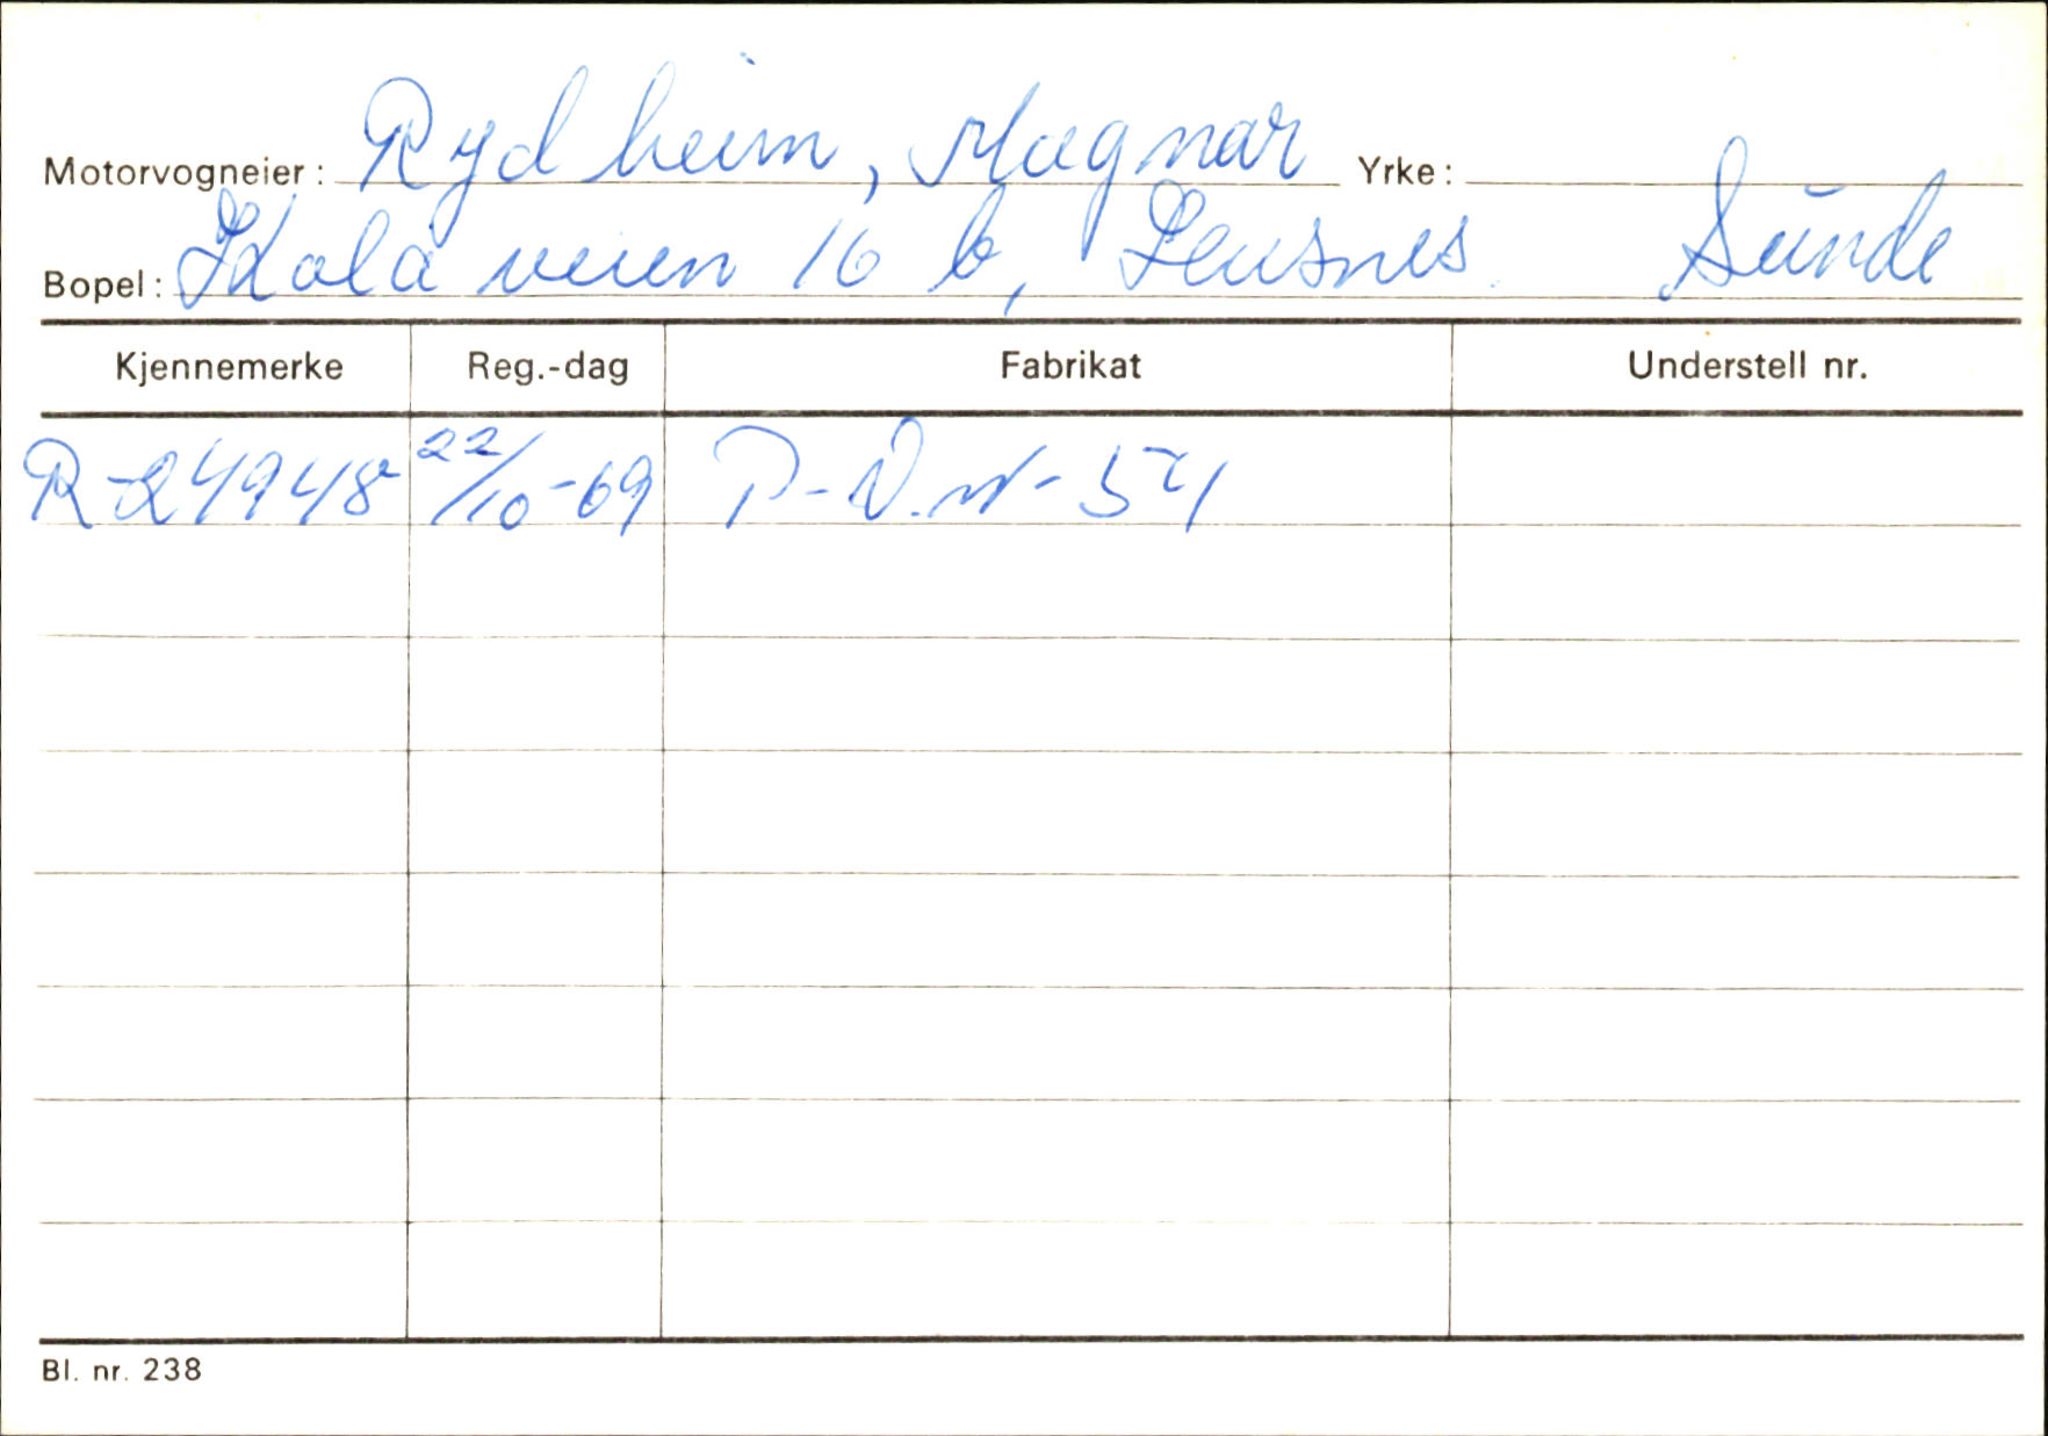 Motorvogneier: Rydheim, Magnar Yrke:
Bopel: Kolaveien 16 b, Leusnes. Sunde
Kjennemerke Reg.-dag Fabrikat Understell nr.
R-24948 22/10-69 P-V.W-54
Bl. nr. 238